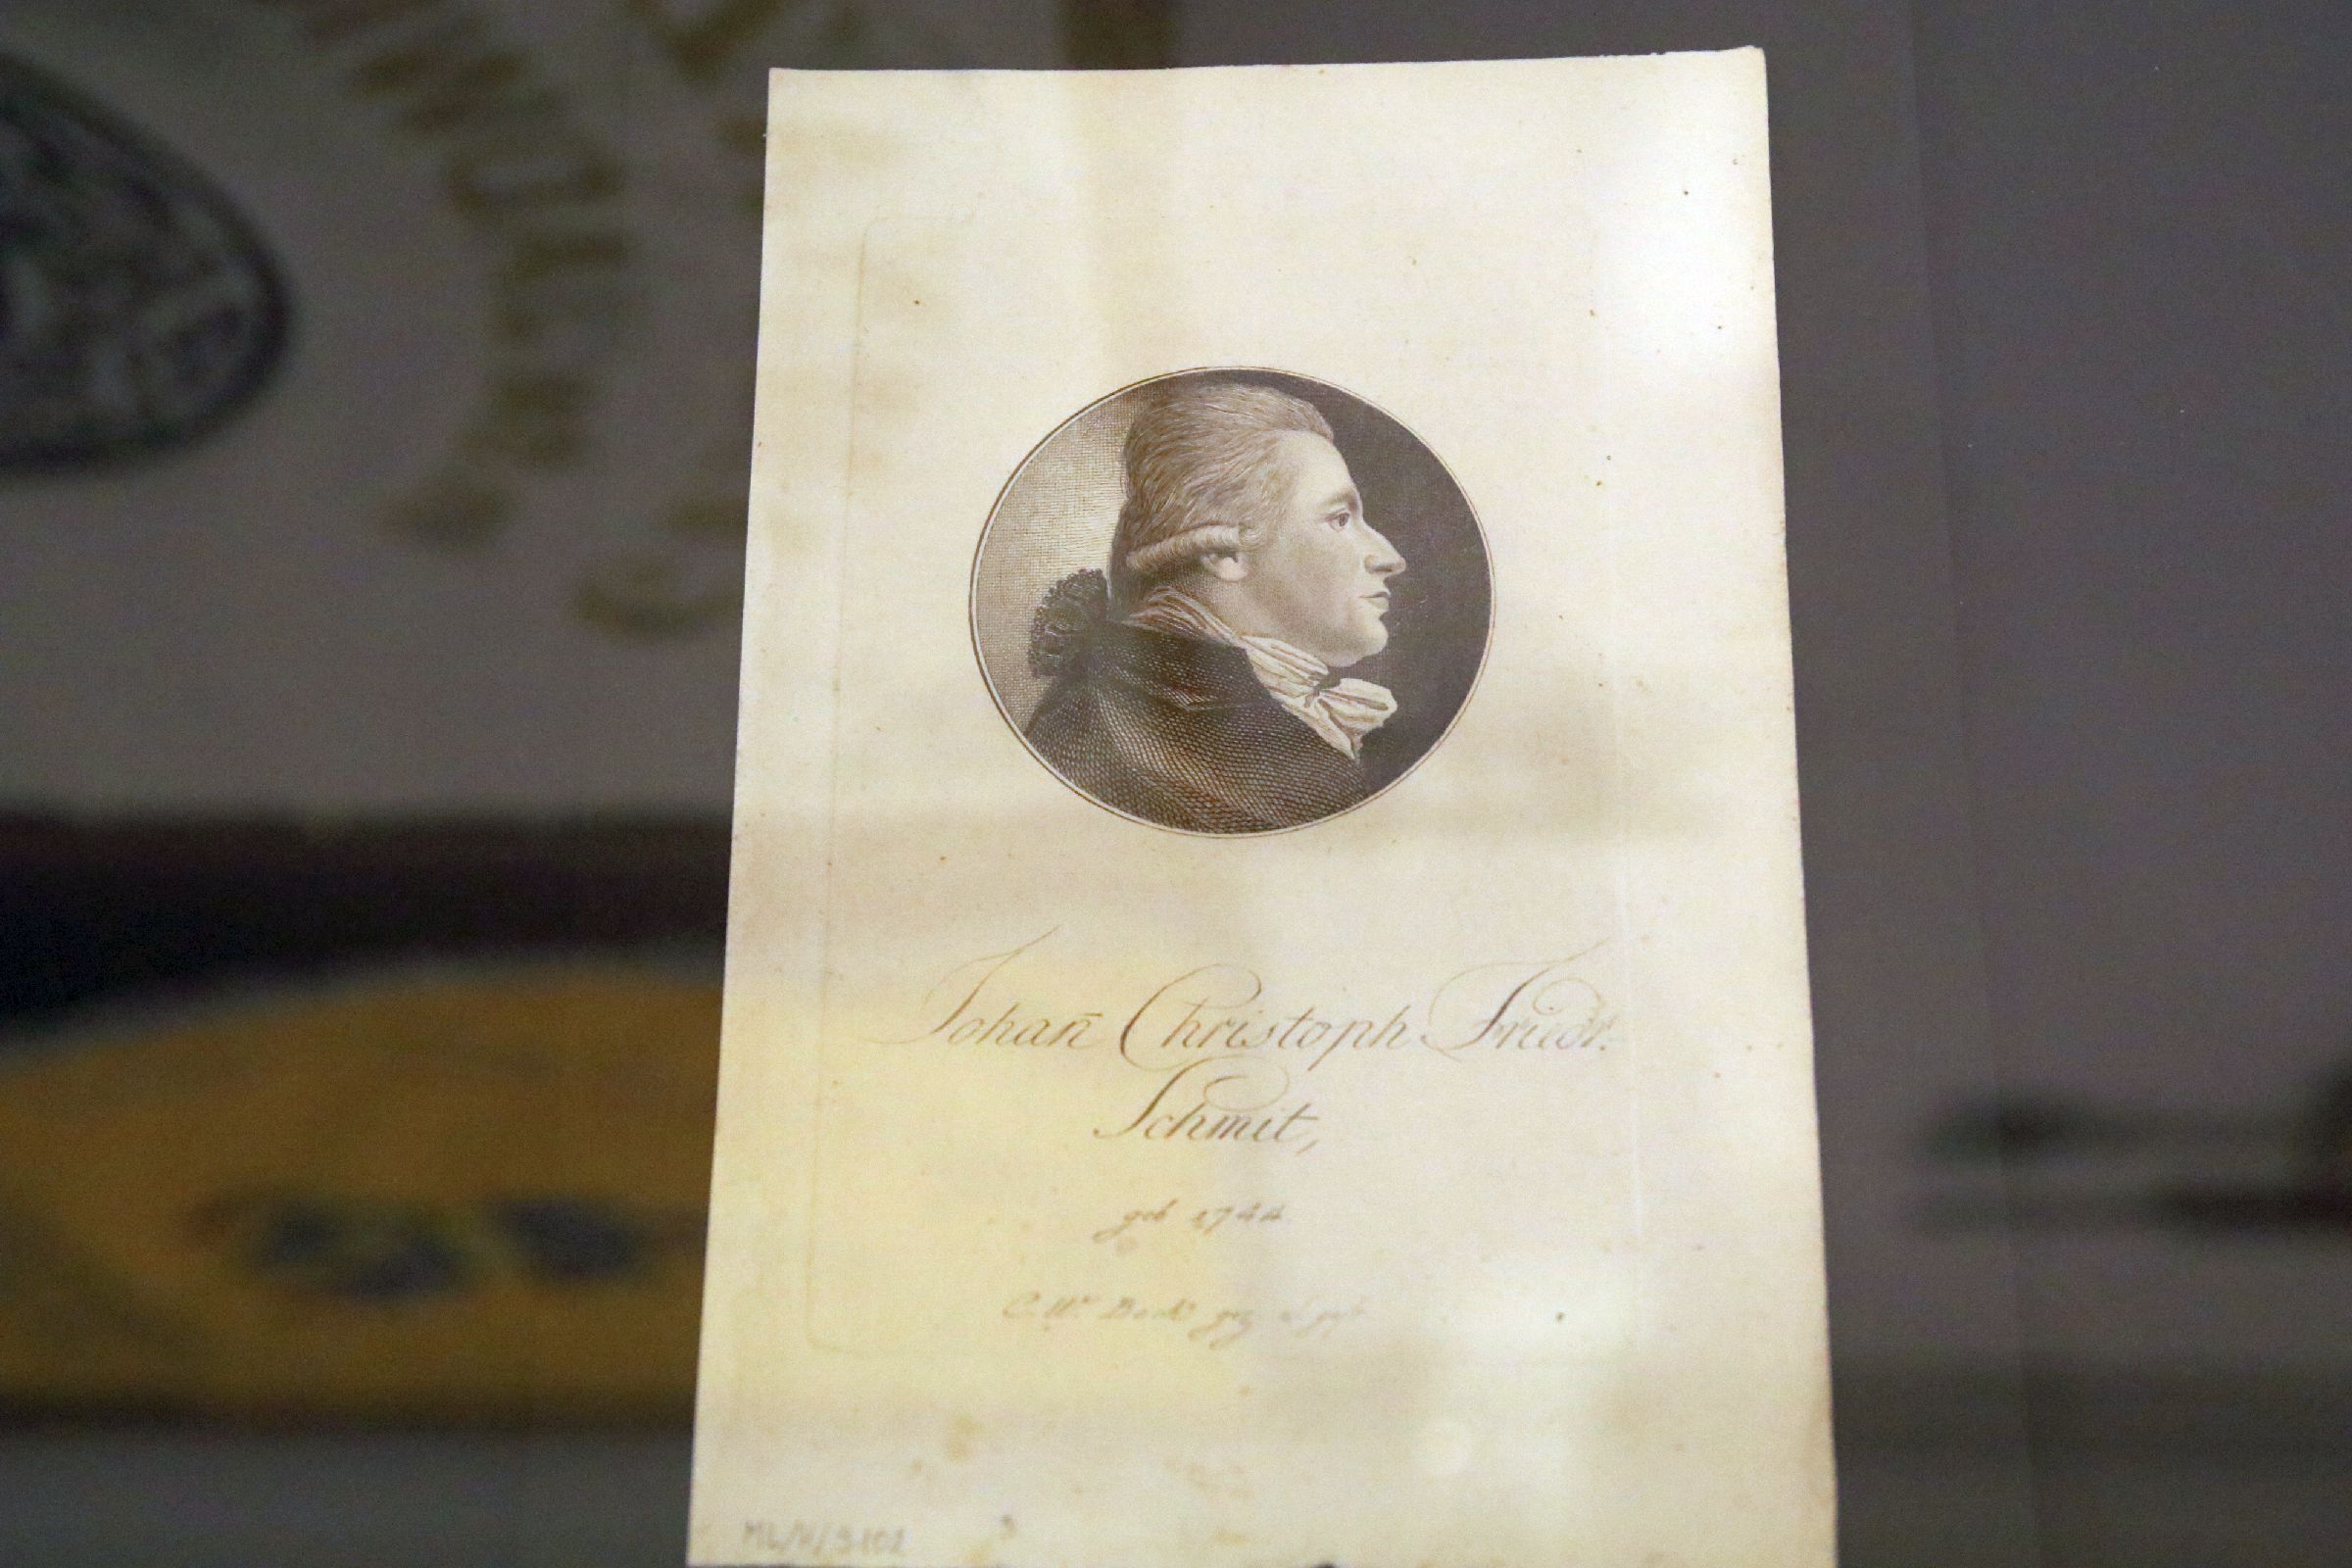 Johan̄ Christoph Friedr.
Schmit,
geb 1744.
C. Wm. Bock gez. u. gest.
ML/V/9.102